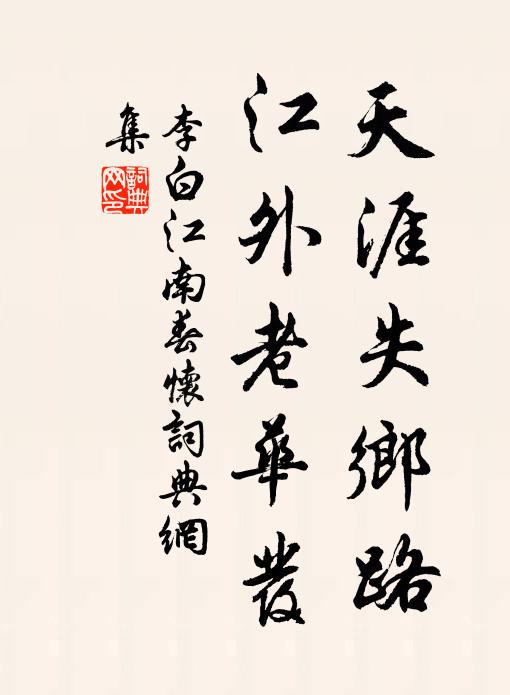 天涯失鄉路
江外老華發
李白江南春懷詞典網
集
詞典
网印